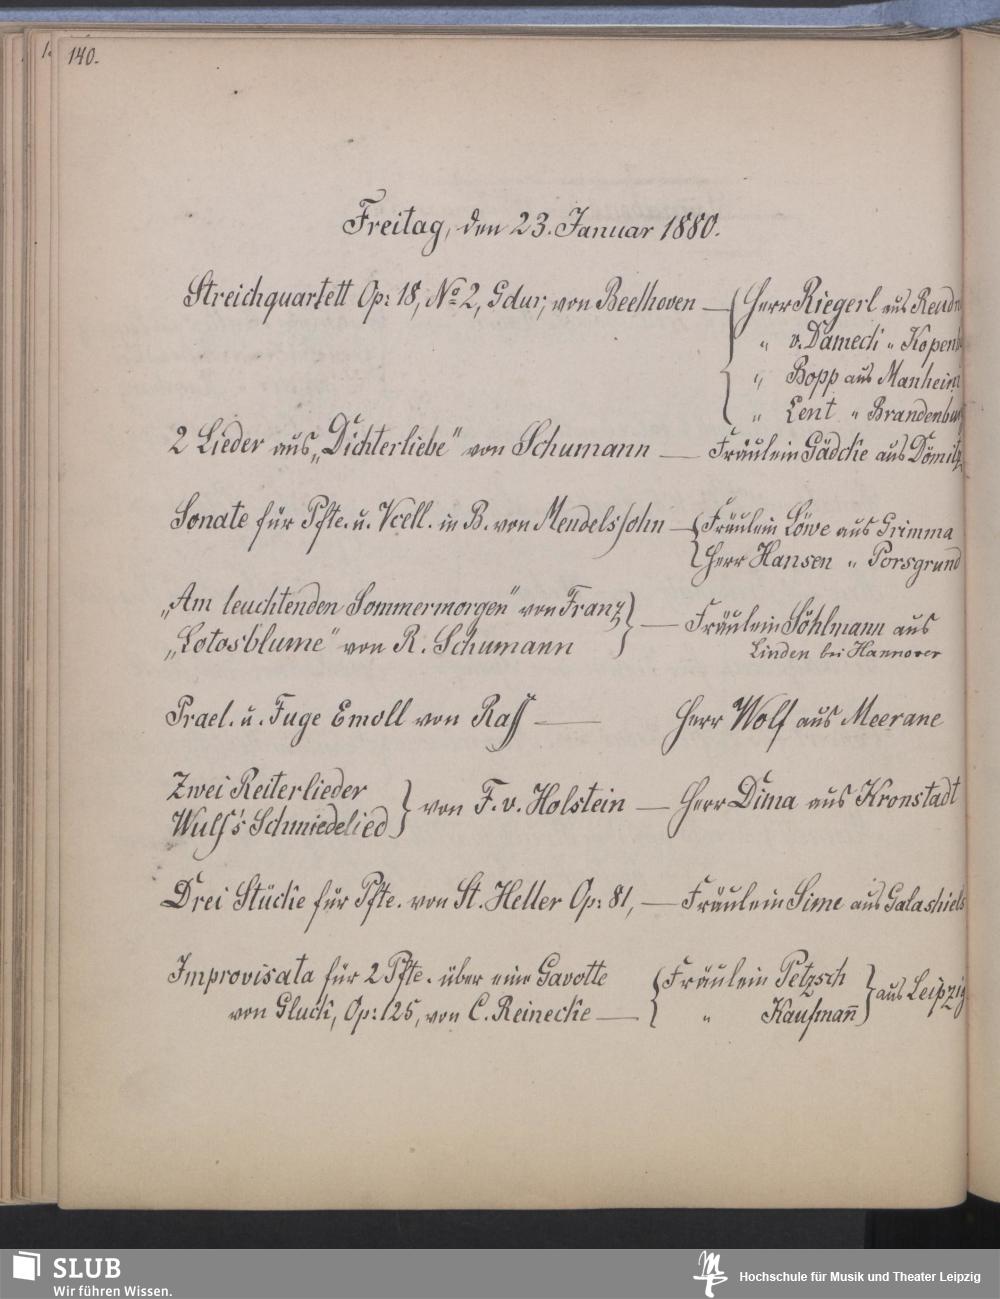 140.
Freitag, den 23. Januar 1880.
Streichquartett Op: 18, No 2, Gdur, von Beethoven — Herr Riegerl aus
" v. Dameck "
" Bopp aus Manheim
" Lent " Brandenburg
2 Lieder aus „Dichterliebe" von Schumann — Fräulein Gädcke aus Dömitz
Sonate für Pfte. u. Vcell. in B. von Mendelssohn — Fräulein Löwe aus Grimma
Herr Hansen " Porsgrund
„Am leuchtenden Sommermorgen" von Franz
„Lotosblume" von R. Schumann — Fräulein Söhlmann aus
Linden bei Hannover
Prael. u. Fuge Emoll von Raff — Herr Wolf aus Meerane
Zwei Reiterlieder
Wulf's Schmiedelied von F. v. Holstein — Herr Dima aus Kronstadt
Drei Stücke für Pfte. von St. Heller Op: 81, — Fräulein Sime aus Galashiels
Improvisata für 2 Pfte. über eine Gavotte
von Gluck, Op: 125, von C. Reinecke — Fräulein Petzsch
" Kaufmañ aus Leipzig
SLUB
Wir führen Wissen.
Hochschule für Musik und Theater Leipzig